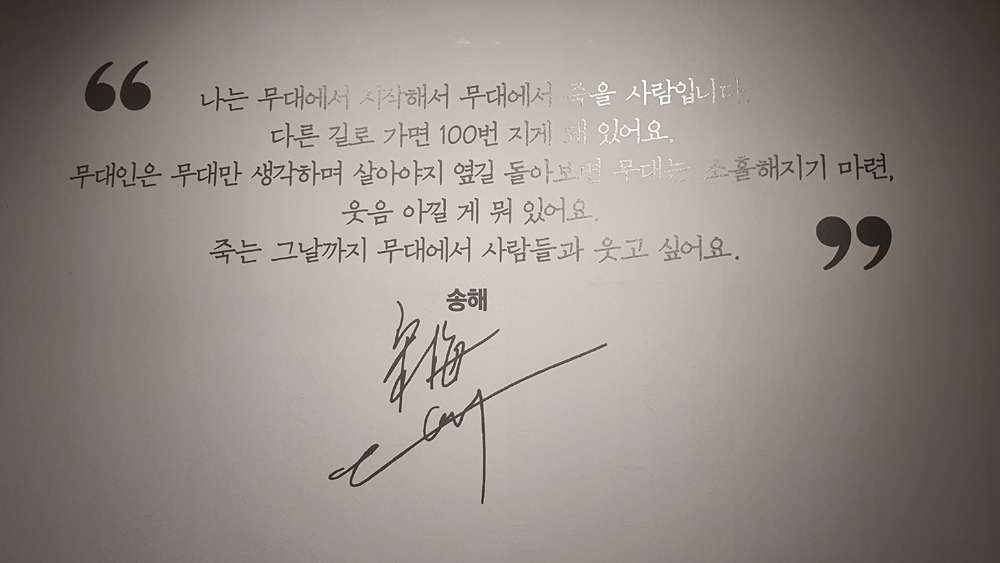 “
나는 무대에서 시작해서 무대에서 죽을 사람입니다.
다른 길로 가면 100번 지게 돼 있어요.
무대인은 무대만 생각하며 살아야지 옆길 돌아보면 무대는 소홀해지기 마련,
웃음 아낄 게 뭐 있어요.
죽는 그날까지 무대에서 사람들과 웃고 싶어요.
”
송해
宋海